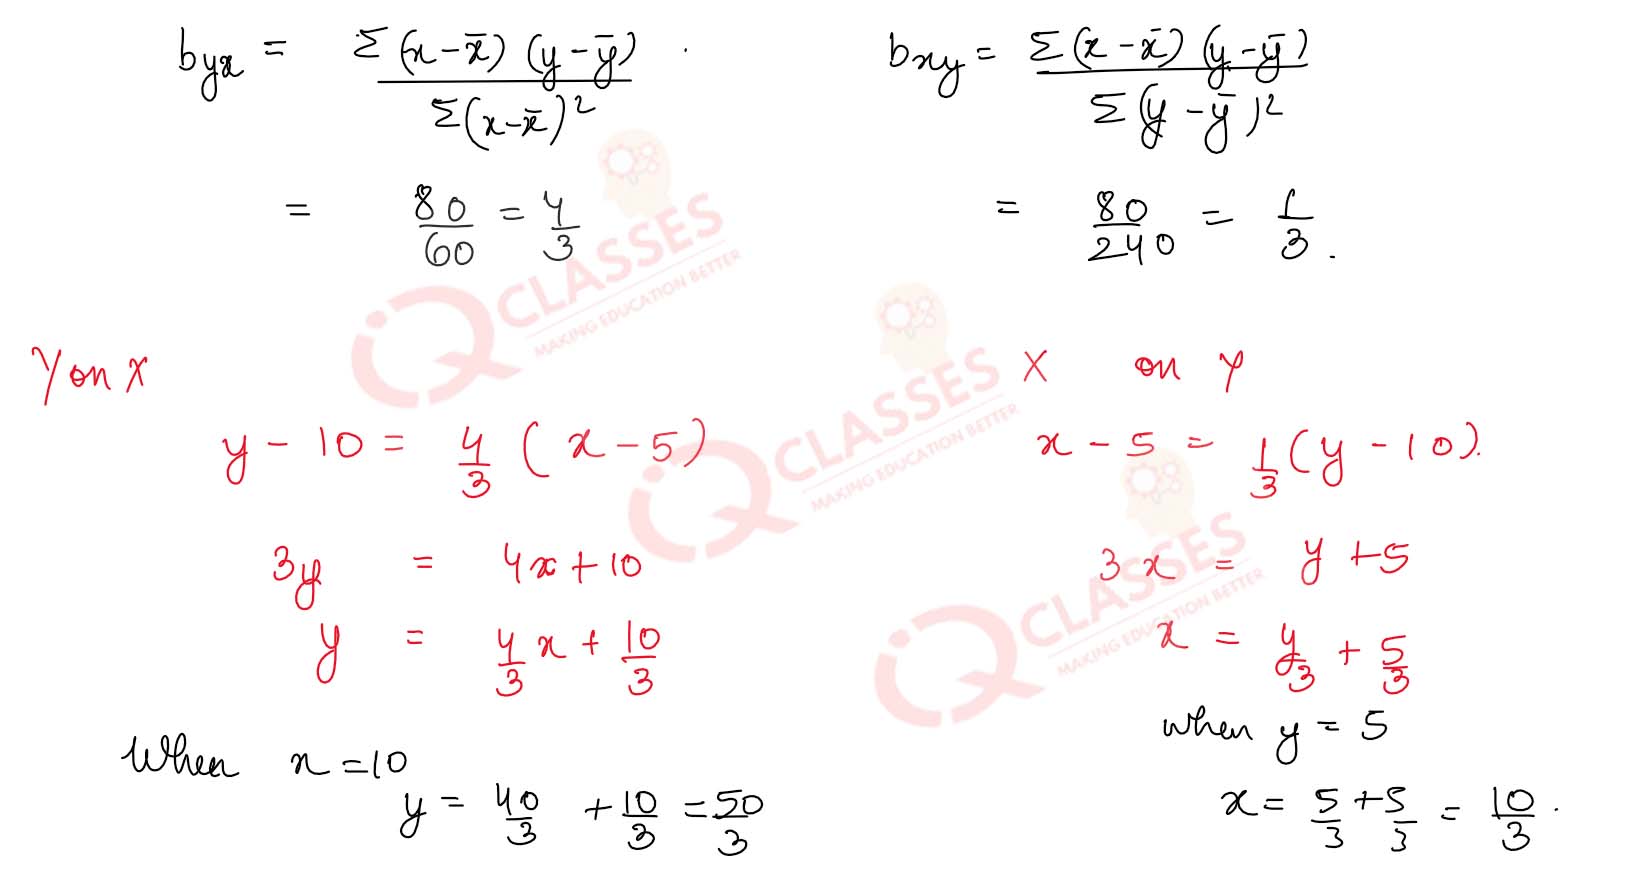 byx = Σ(x-x̄)(y-ȳ) / Σ(x-x̄)²
= 80/60 = 4/3
bxy = Σ(x-x̄)(y-ȳ) / Σ(y-ȳ)²
= 80/240 = 1/3.
Y on X
y - 10 = 4/3 (x - 5)
3y = 4x + 10
y = 4/3 x + 10/3
When x = 10
y = 40/3 + 10/3 = 50/3
X on Y
x - 5 = 1/3 (y - 10).
3x = y + 5
x = y/3 + 5/3
when y = 5
x = 5/3 + 5/3 = 10/3.
iQ CLASSES
MAKING EDUCATION BETTER
iQ CLASSES
MAKING EDUCATION BETTER
iQ CLASSES
MAKING EDUCATION BETTER